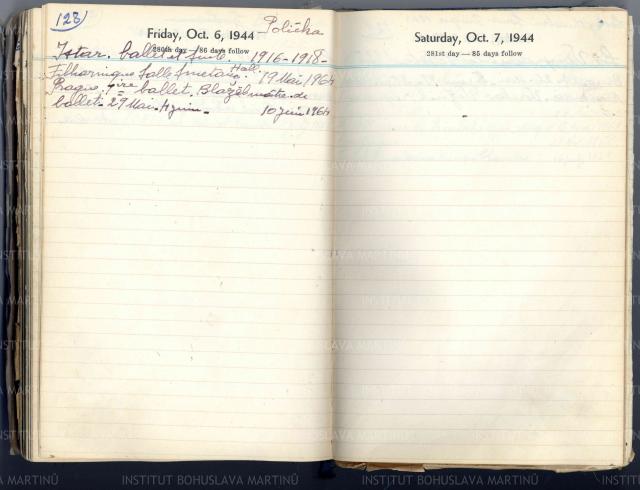 123
Friday, Oct. 6, 1944
Polička
280th day — 86 days follow
Istar. ballet et suite. 1916-1918-
Filharmonique Salle Smetana Hall 19 Mai, 1964
Prague, 1ire ballet. Blažek maître de
ballet: 29 Mai. 4 juin. 10 juin 1964
Saturday, Oct. 7, 1944
281st day — 85 days follow
INSTITUT BOHUSLAVA MARTINŮ